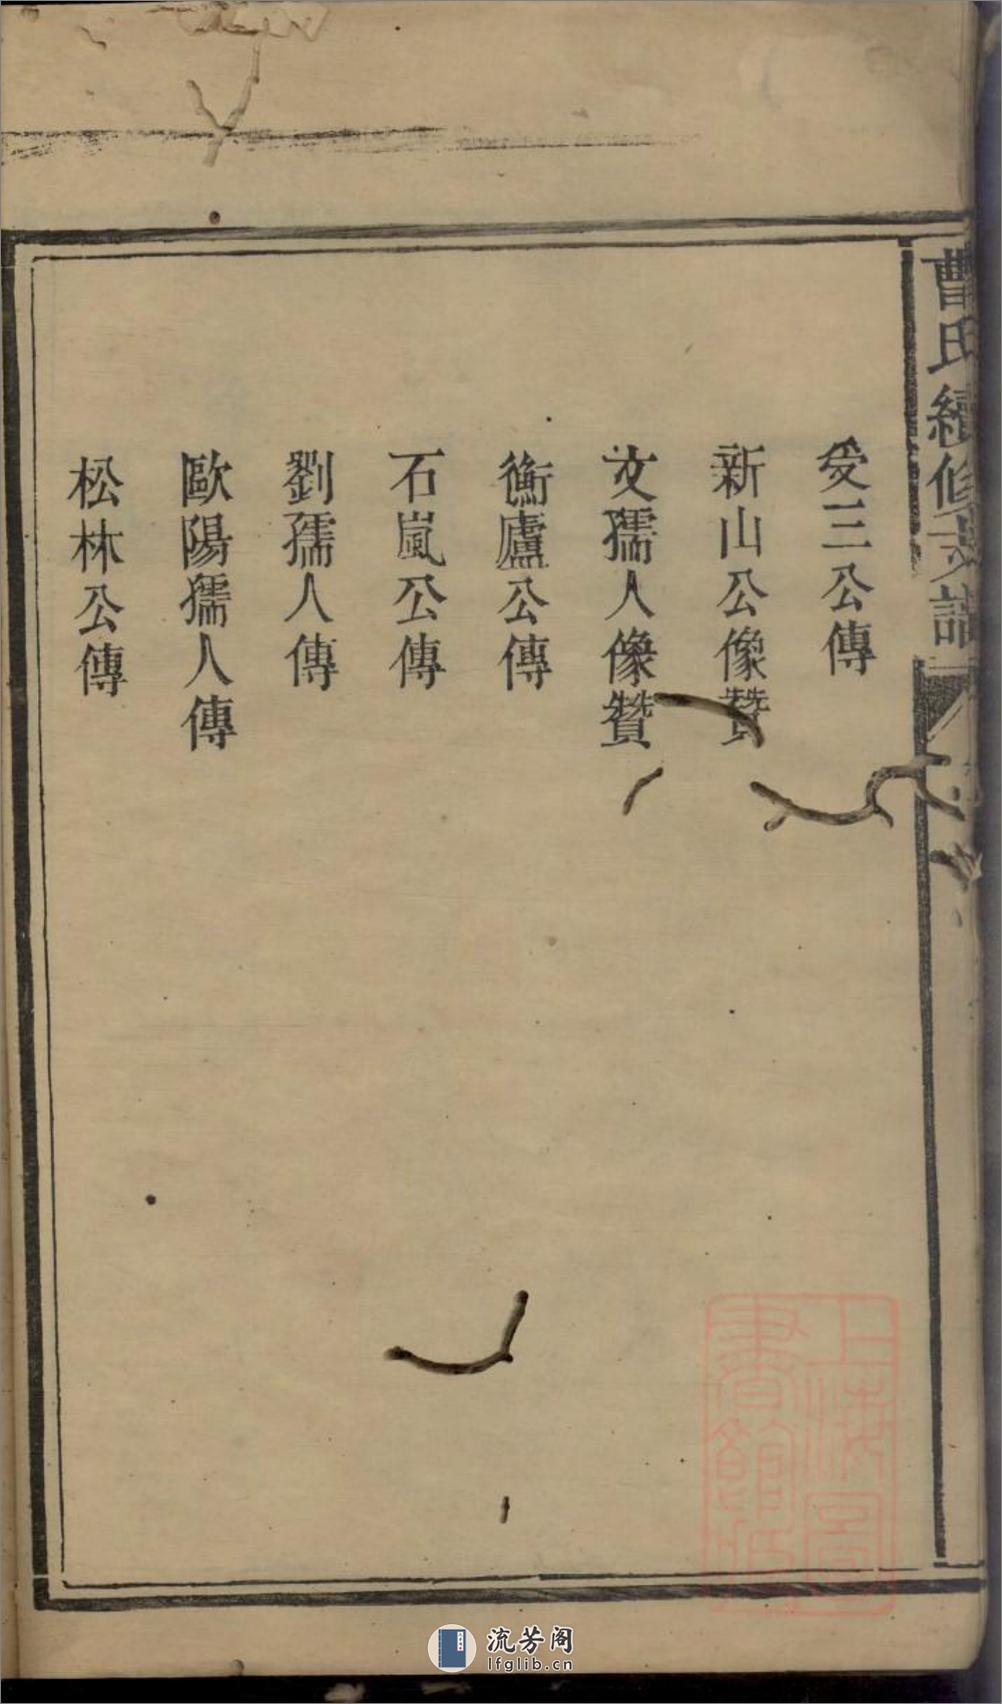 曹氏續修支譜
受三公傳
新山公像贊
文孺人像贊
衡廬公傳
石嵐公傳
劉孺人傳
歐陽孺人傳
松林公傳
上海圖
書館藏
流芳阁
lfglib.cn